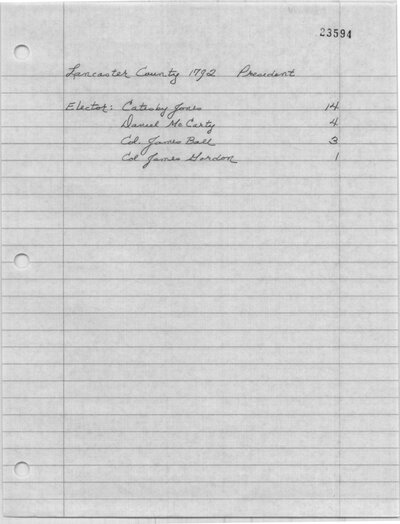 23594
Lancaster County 1792 President
Elector: Catesby Jones 14
Daniel McCarty 4
Col. James Ball 3
Col James Gordon 1